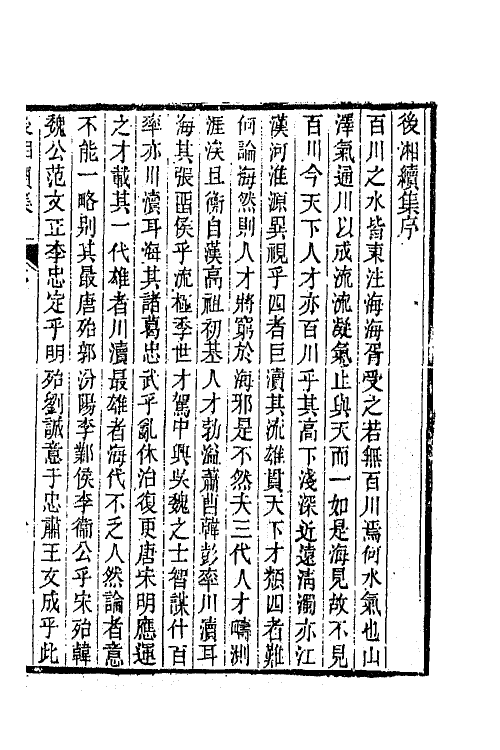 後湘續集序
百川之水皆東注海海胥受之若無百川焉何水氣也山
澤氣通川以成流流凝氣止與天而一如是海見故不見
百川今天下人才亦百川乎其高下淺深近遠淸濁亦江
漢河淮源異視乎四者巨瀆其流雄貫天下才類四者難
何論海然則人才將窮於海邪是不然夫三代人才疇測
涯涘且衡自漢高祖初基人才勃溢蕭曹韓彭率川瀆耳
海其張畱侯乎流極季世才駕中興吳魏之士智謀什百
率亦川瀆耳海其諸葛忠武乎亂休治復更唐宋明應運
之才載其一代雄者川瀆最雄者海代不乏人然論者意
不能一略别其最唐殆郭汾陽李鄴侯李衞公乎宋殆韓
魏公范文正李忠定乎明殆劉誠意于忠肅王文成乎此